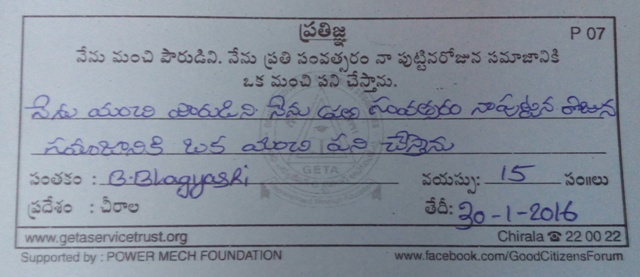 ప్రతిజ్ఞ
P 07
నేను మంచి పౌరుడిని. నేను ప్రతి సంవత్సరం నా పుట్టినరోజున సమాజానికి
ఒక మంచి పని చేస్తాను.
నేను మంచి పౌరుడిని నేను ప్రతి సంవత్సరం నా పుట్టిన రోజున
సమాజానికి ఒక మంచి పని చేస్తాను
GETA
సంతకం : B.Bhagyasri వయస్సు: 15 సం॥లు
ప్రదేశం : చీరాల తేదీ: 30-1-2016
www.getaservicetrust.org Chirala ☎ 22 00 22
Supported by : POWER MECH FOUNDATION www.facebook.com/GoodCitizensForum